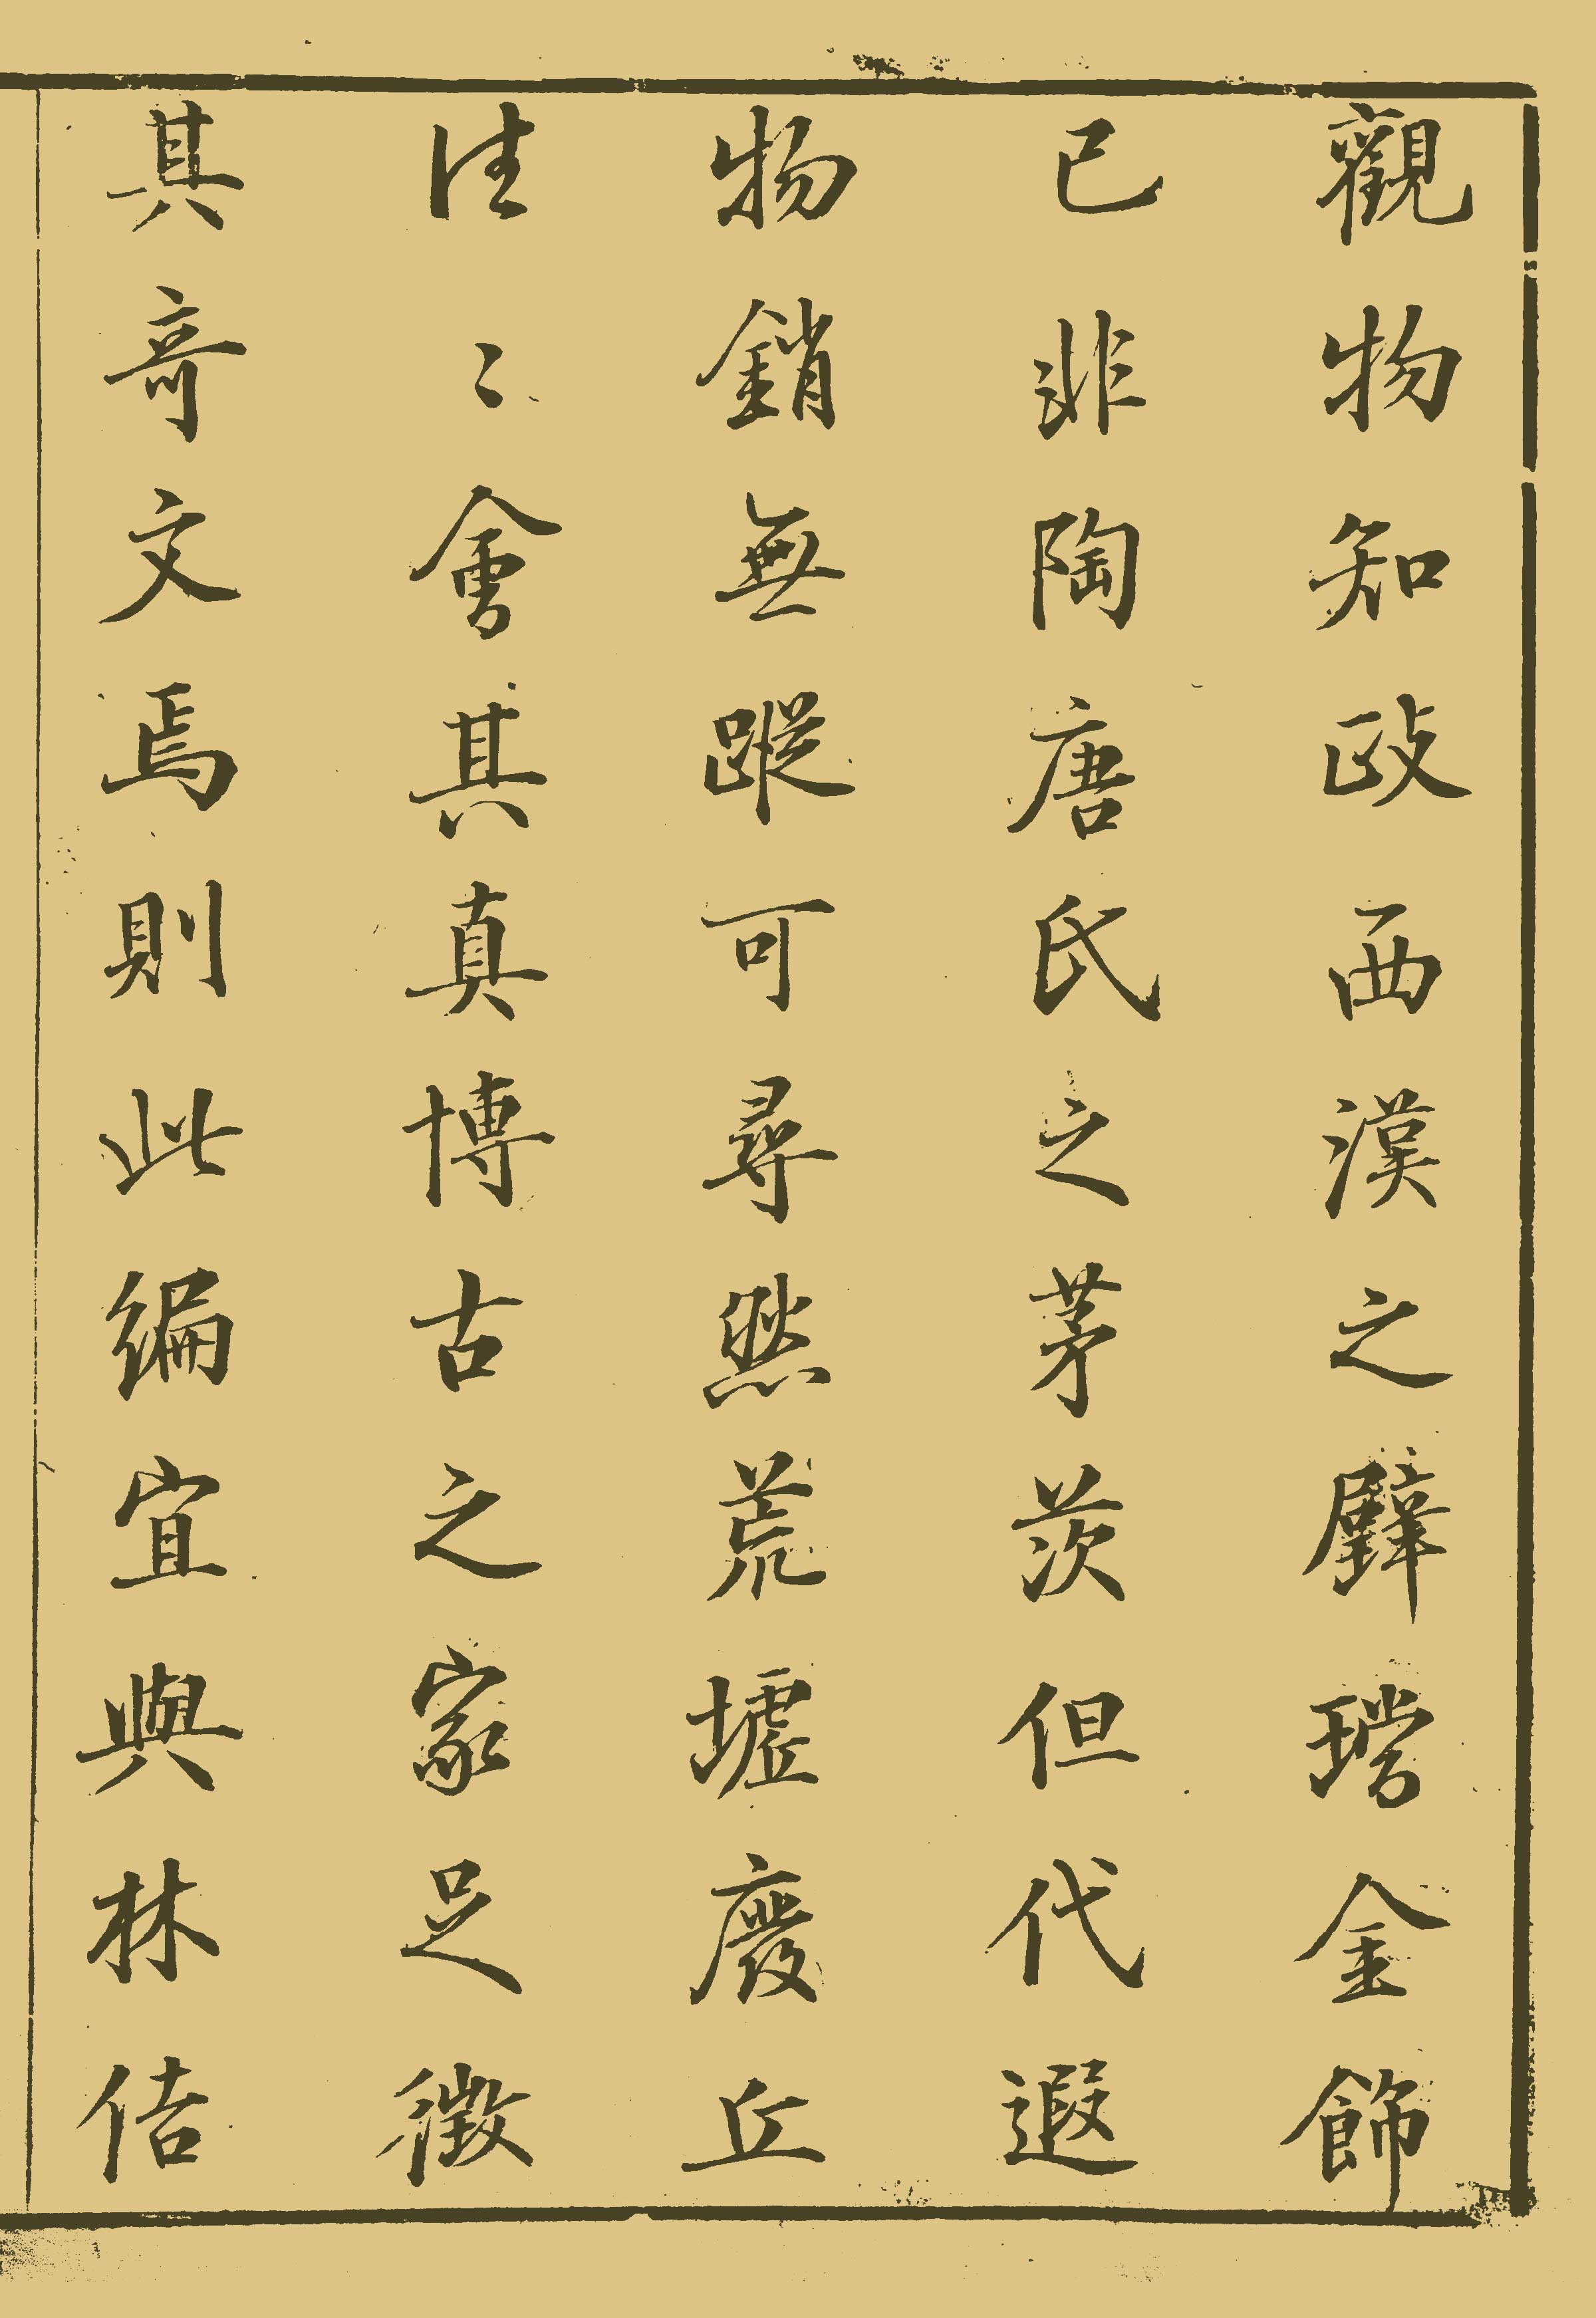 觀物知政西漢之璧璫金飾
已非陶唐氏之茅茨但代遐
物銷無蹤可尋然荒墟廢丘
往〻會其真博古之家足徵
其奇文焉則此編宜與林佶